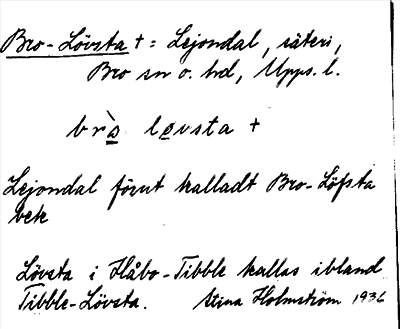 Bro-Lövsta + = Lejondal, säteri,
Bro sn o. hd, Upps. l.
brò̲a̲ lø̲vsta +
Lejondal förut kalladt Bro-Löfsta
bek
Lövsta i Håbo-Tibble kallas ibland
Tibble-Lövsta. Stina Holmström 1936